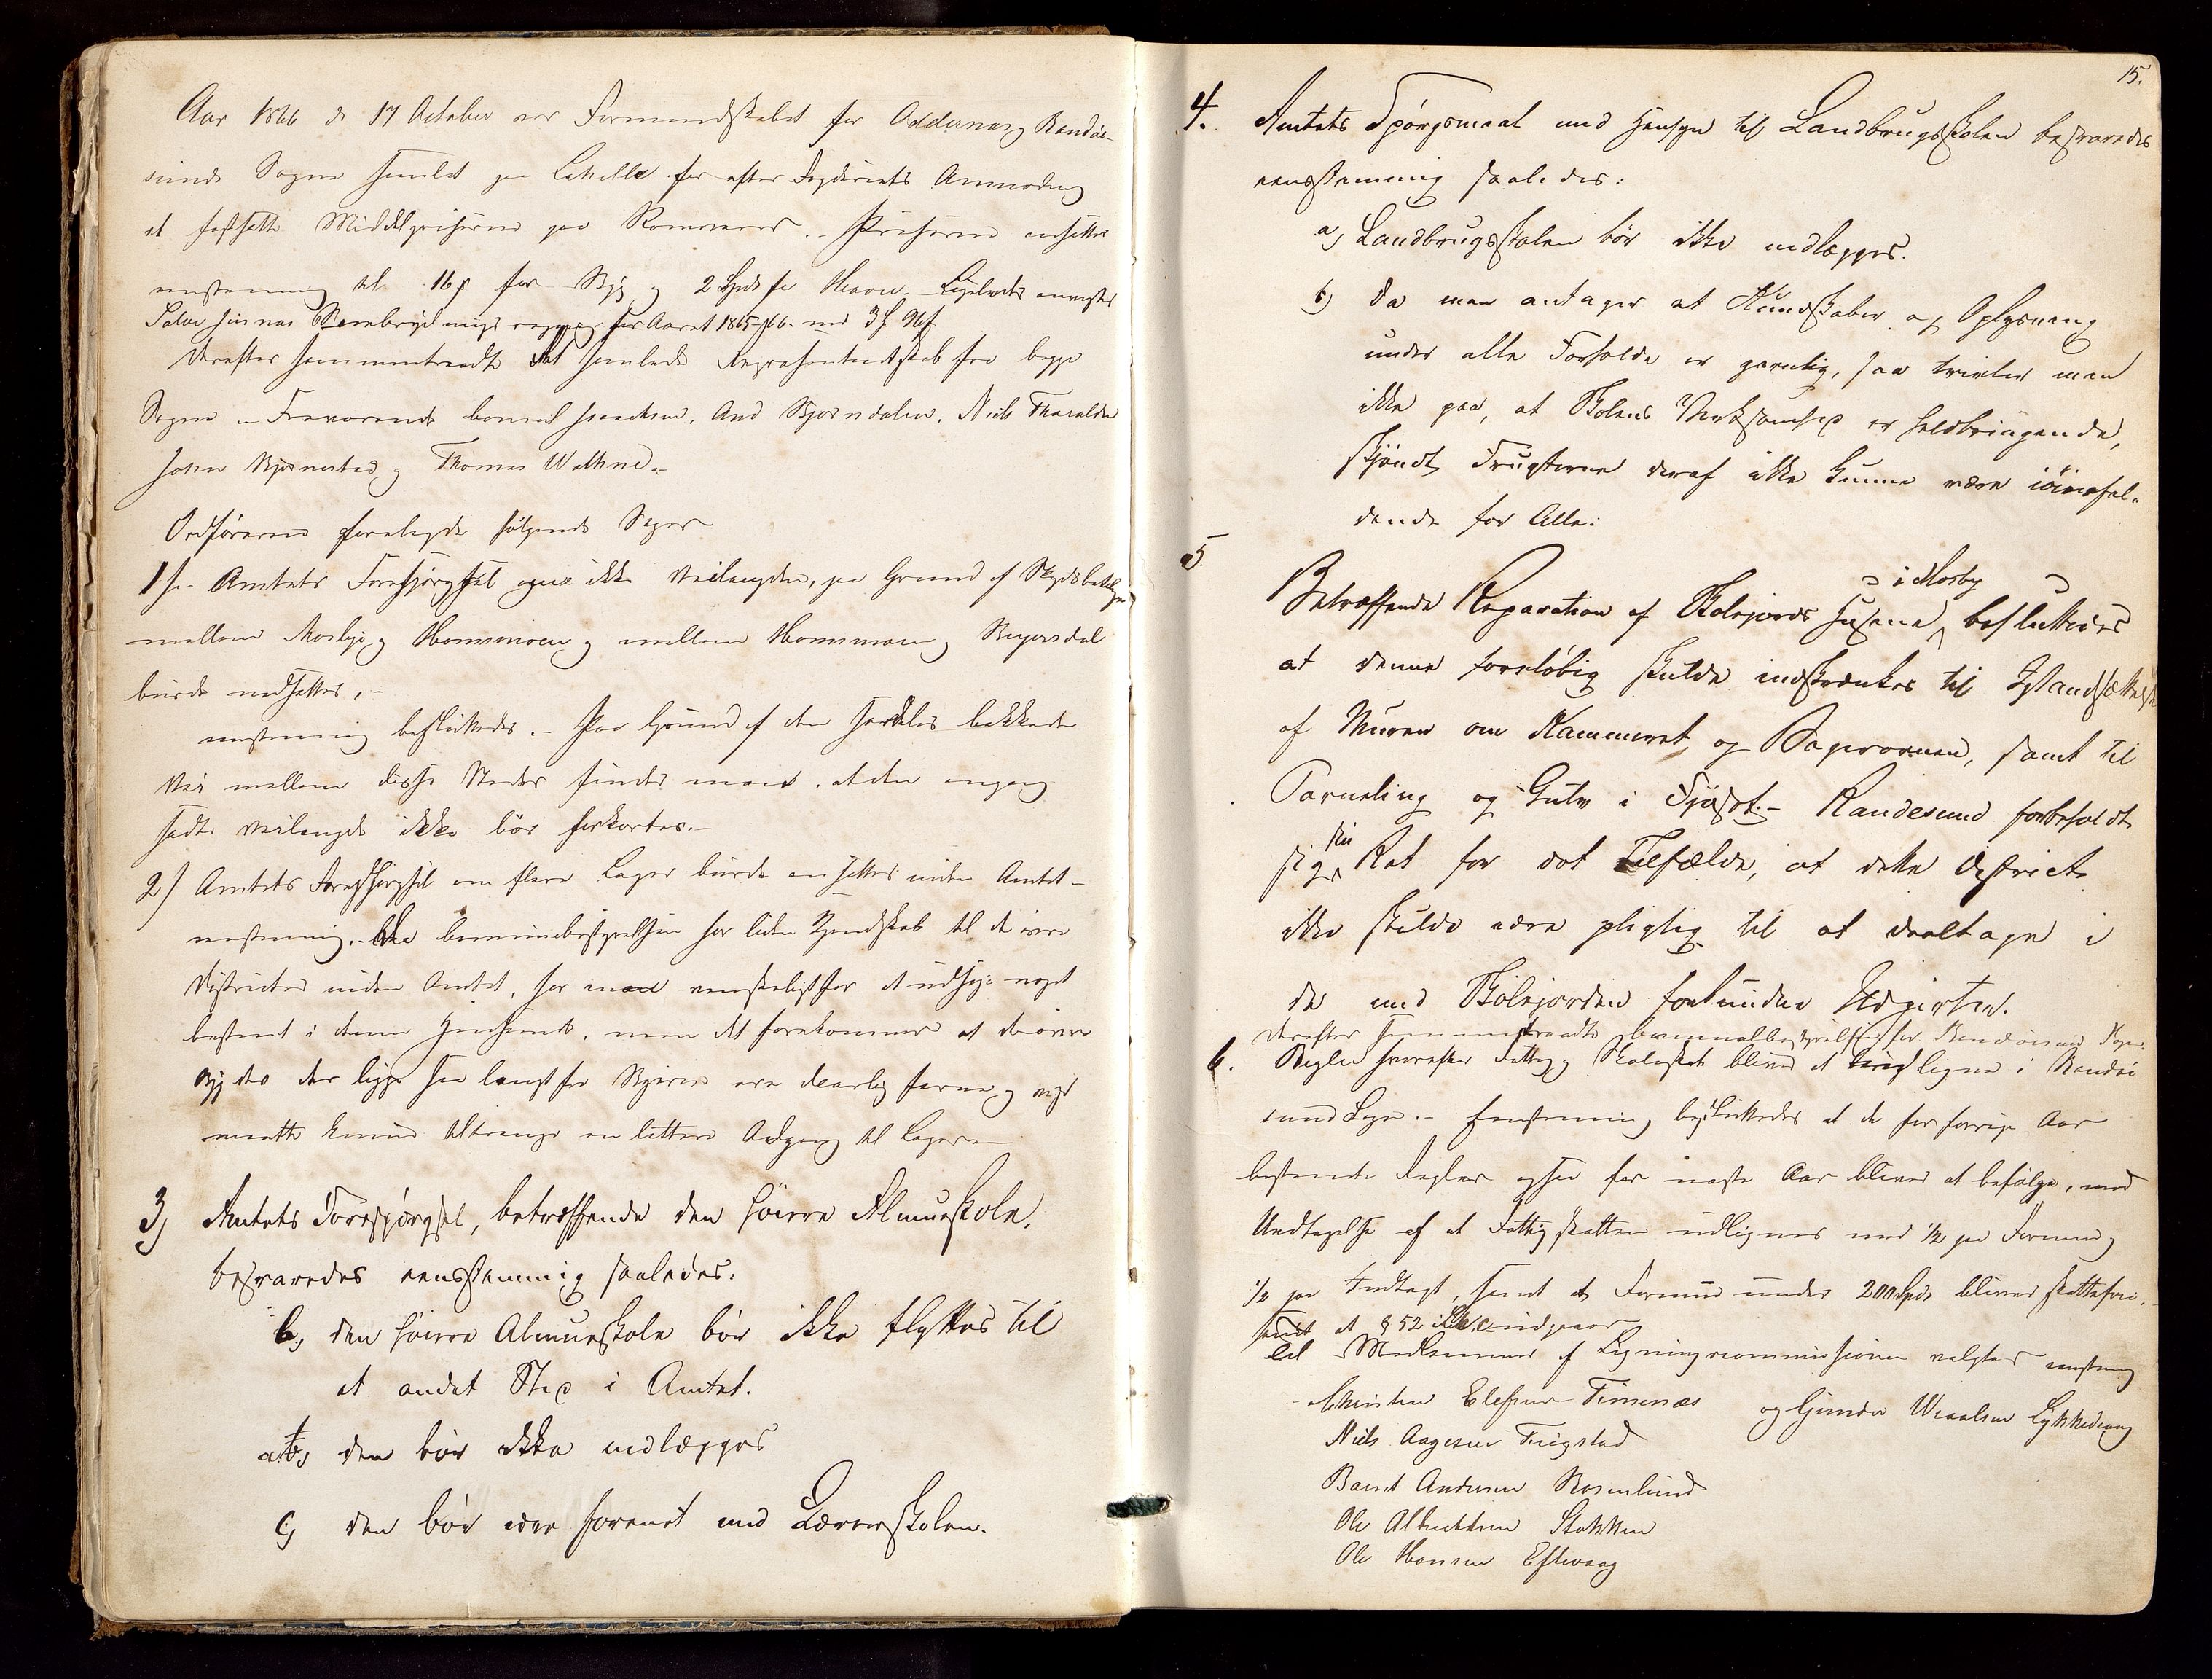 Aar 1866 d 17 October var Formandskabet for Oddernes og Randø-
sunds Sogne samlet paa Lahelle for efter Fogderiets Anmodning
at fastsætte Middelpriserne paa Kornvarer. - Priserne ansattes
eenstemmig til 16 β for Byg og 2 Spd for Havre. Ligeledes
for Aaret 1865-66 med 3
Derefter sammentraadte det samlede Repræsentantskab fra begge
Sogne - Fraværende Isaachsen, And Bjørndalen, Niels Tharaldsen
Johan Bjørnestad og Thomas Walhne. -
Ordføreren forelagde følgende Sager
1/ Amtets Forespørgsel ikke Veilængden, paa Grund af Skydsbetaling
mellem Mosby og Homsmoen og mellem Homsmoen og
burde nedsættes. -
eenstemmig besluttedes. - Paa Grund af den særdeles bakkede
Vei mellem disse Steder finder man, at den engang
satte Veilængde ikke bør forkortes. -
2/ Amtets Forespørgsel om flere Læger burde ansættes inden Amtet -
eenstemmig. - Da Communebestyrelsen har liden Kjendskab til de øvre
Districter inden Amtet, har man vanskeligt for at udsige noget
bestemt i denne Henseende, men det forekommer at de øvre
Bygder der ligge saa langt fra Byerne ere daarlig farne og
maatte kunne tiltrænge en lettere Adgang til Læger -
3) Amtets Forespørgsel, betræffende den høiere Almueskole,
besvaredes eensstemmig saaledes:
b, den høiere Almueskole bør ikke flyttes til
et andet Sted i Amtet.
a, den bør ikke nedlægges
c, den bør være forenet med Lærerskolen.
15.
4. Amtets Spørgsmaal med Hensyn til Landbrugsskolen besvaredes
eensstemmig saaledes:
a, Landbrugsskolen bør ikke nedlægges.
b) da man antager at Kundskaber og Oplysning
under alle Forholde er gavnlig, saa tvivler man
ikke paa, at Skolens Virksomhed er heldbringende,
skjøndt Frugterne deraf ikke kunne være iøinefal-
dende for Alle:
5. i Mosby
Betræffende Reparation af Skolejords Husene, besluttedes
at denne foreløbig skulde indskrænkes til Istandsættelse
af Muren om Kammeret og Bagerovnen, samt til
Panneling og Gulv i Fjøset. - Randesund forbeholdt
sig sin Ret for det Tilfælde, at dette District
ikke skulde være pligtig til at deeltage i
de med Skolejorden forbundne Udgifter.
Derefter sammentraadte Communalbestyrelsen for Randøsund Sogn.
6. Regler hvorefter Fattig og Skoleskat bliver at ligne i Randø
sund Sogn. - Eenstemmig besluttedes at de for forrige Aar
bestemte Regler ogsaa for næste Aar bliver at befølge, med
Undtagelse af at Fattigskatten udlignes med ½ paa Formue og
½ paa Indtægt, samt at Formue under 200 Spd bliver skattefrie.
samt at § 52 udgaar
Til Medlemmer af Ligningscommissionen valgtes eenstemmig
Christen Elefsen Timenæs og Gunder Wraalsen Lykkedrang
Niels Aagesen Fugstad
Barent Andersen Rosenlund
Ole Albrechtsen Stokken
Ole Hansen Eftevaag